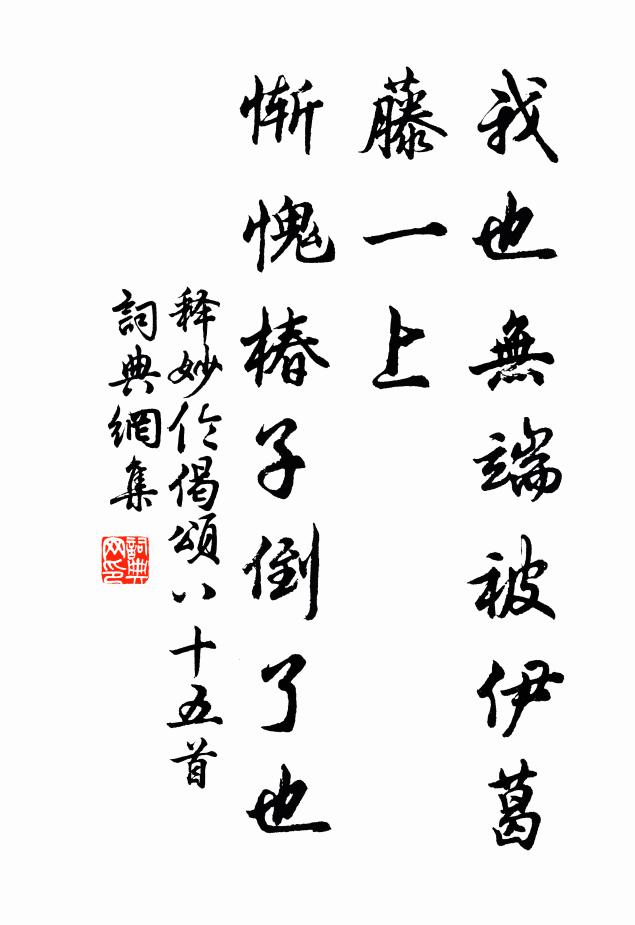 我也無端被伊葛
藤一上
惭愧樁子倒了也
释妙伦偈頌八十五首
詞典網集
詞典网印